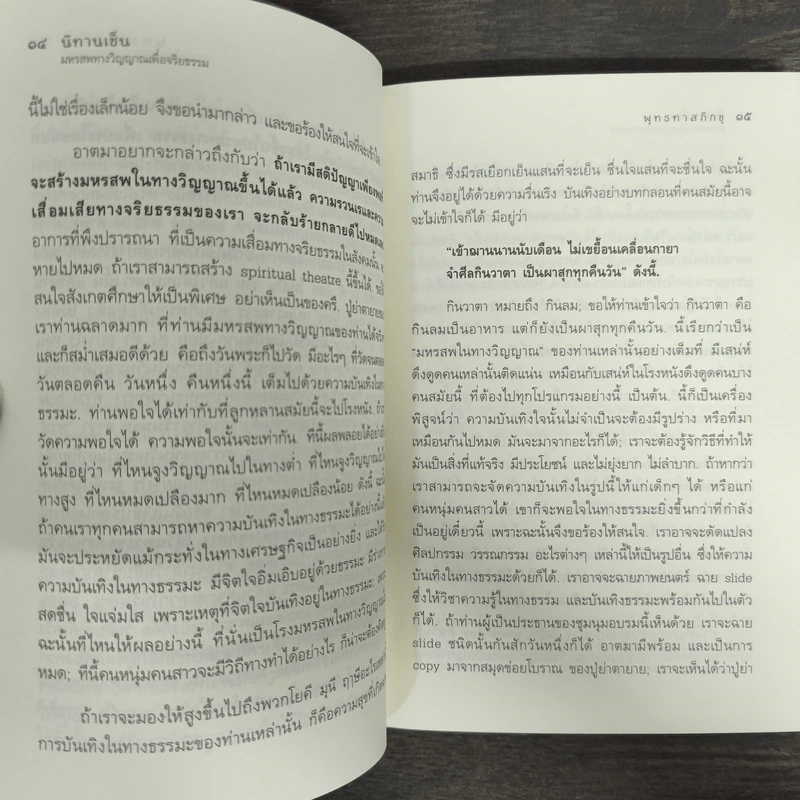 ๑๔ นิทานเซ็น
มหรสพทางวิญญาณเพื่อจริยธรรม
นี้ไม่ใช่เรื่องเล็กน้อย จึงขอนำมากล่าว และขอร้องให้สนใจที่จะเข้าใจ
อาตมาอยากจะกล่าวถึงกับว่า ถ้าเรามีสติปัญญาเพียงพอที่
จะสร้างมหรสพในทางวิญญาณขึ้นได้แล้ว ความรวนเรและความ
เสื่อมเสียทางจริยธรรมของเรา จะกลับร้ายกลายดีไปหมดและ
อาการที่พึงปรารถนา ที่เป็นความเสื่อมทางจริยธรรมในสังคมนั้น จะ
หายไปหมด ถ้าเราสามารถสร้าง spiritual theatre นี้ขึ้นได้
สนใจสังเกตศึกษาให้เป็นพิเศษ อย่าเห็นเป็นของครึ. ปู่ย่าตายายของ
เราท่านฉลาดมาก ที่ท่านมีมหรสพทางวิญญาณของท่านได้จริง
และก็สม่ำเสมอดีด้วย คือถึงวันพระก็ไปวัด มีอะไรๆ ที่วัดจน
วันตลอดคืน วันหนึ่ง คืนหนึ่งนี้ เต็มไปด้วยความบันเทิงใน
ธรรมะ. ท่านพอใจได้เท่ากับที่ลูกหลานสมัยนี้จะไปโรงหนัง. ถ้า
วัดความพอใจได้ ความพอใจนั้นจะเท่ากัน. ทีนี้ผลพลอยได้อย่าง
นั้นมีอยู่ว่า ที่ไหนจูงวิญญาณไปในทางต่ำ ที่ไหนจูงวิญญาณไปใน
ทางสูง ที่ไหนหมดเปลืองมาก ที่ไหนหมดเปลืองน้อย ดังนี้
ถ้าคนเราทุกคนสามารถหาความบันเทิงในทางธรรมะได้อย่างนี้
มันจะประหยัดแม้กระทั่งในทางเศรษฐกิจเป็นอย่างยิ่ง และได้
ความบันเทิงในทางธรรมะ มีจิตใจอิ่มเอิบอยู่ด้วยธรรมะ มีร่างกาย
สดชื่น ใจแจ่มใส เพราะเหตุที่จิตใจบันเทิงอยู่ในทางธรรมะ.
ฉะนั้นที่ไหนให้ผลอย่างนี้ ที่นั่นเป็นโรงมหรสพในทางวิญญาณ
หมด; ทีนี้คนหนุ่มคนสาวจะมีวิถีทางทำได้อย่างไร ก็น่าจะต้อง
ถ้าเราจะมองให้สูงขึ้นไปถึงพวกโยคี มุนี ฤาษีอะไร
การบันเทิงในทางธรรมะของท่านเหล่านั้น ก็คือความสุขที่เกิด
พุทธทาสภิกขุ ๑๕
สมาธิ ซึ่งมีรสเยือกเย็นแสนที่จะเย็น ชื่นใจแสนที่จะชื่นใจ ฉะนั้น
ท่านจึงอยู่ได้ด้วยความรื่นเริง บันเทิงอย่างบทกลอนที่คนสมัยนี้อาจ
จะไม่เข้าใจก็ได้ มีอยู่ว่า
“เข้าฌานนานนับเดือน ไม่เขยื้อนเคลื่อนกายา
จำศีลกินวาตา เป็นผาสุกทุกคืนวัน” ดังนี้.
กินวาตา หมายถึง กินลม; ขอให้ท่านเข้าใจว่า กินวาตา คือ
กินลมเป็นอาหาร แต่ก็ยังเป็นผาสุกทุกคืนวัน. นี้เรียกว่าเป็น
“มหรสพในทางวิญญาณ” ของท่านเหล่านั้นอย่างเต็มที่ มีเสน่ห์
ดึงดูดคนเหล่านั้นติดแน่น เหมือนกับเสน่ห์ในโรงหนังดึงดูดคนบาง
คนสมัยนี้ ที่ต้องไปทุกโปรแกรมอย่างนี้ เป็นต้น. นี้ก็เป็นเครื่อง
พิสูจน์ว่า ความบันเทิงใจนั้นไม่จำเป็นจะต้องมีรูปร่าง หรือที่มา
เหมือนกันไปหมด มันจะมาจากอะไรก็ได้; เราจะต้องรู้จักวิธีที่ทำให้
มันเป็นสิ่งที่แท้จริง มีประโยชน์ และไม่ยุ่งยาก ไม่ลำบาก. ถ้าหากว่า
เราสามารถจะจัดความบันเทิงในรูปนี้ให้แก่เด็กๆ ได้ หรือแก่
คนหนุ่มคนสาวได้ เขาก็จะพอใจในทางธรรมะยิ่งขึ้นกว่าที่กำลัง
เป็นอยู่เดี๋ยวนี้ เพราะฉะนั้นจึงขอร้องให้สนใจ. เราอาจจะดัดแปลง
ศิลปกรรม วรรณกรรม อะไรต่างๆ เหล่านี้ให้เป็นรูปอื่น ซึ่งให้ความ
บันเทิงในทางธรรมะด้วยก็ได้. เราอาจจะฉายภาพยนตร์ ฉาย slide
ซึ่งให้วิชาความรู้ในทางธรรม และบันเทิงธรรมะพร้อมกันไปในตัว
ก็ได้. ถ้าท่านผู้เป็นประธานของชุมนุมอบรมนี้เห็นด้วย เราจะฉาย
slide ชนิดนั้นกันสักวันหนึ่งก็ได้ อาตมามีพร้อม และเป็นการ
copy มาจากสมุดข่อยโบราณ ของปู่ย่าตายาย; เราจะเห็นได้ว่าปู่ย่า